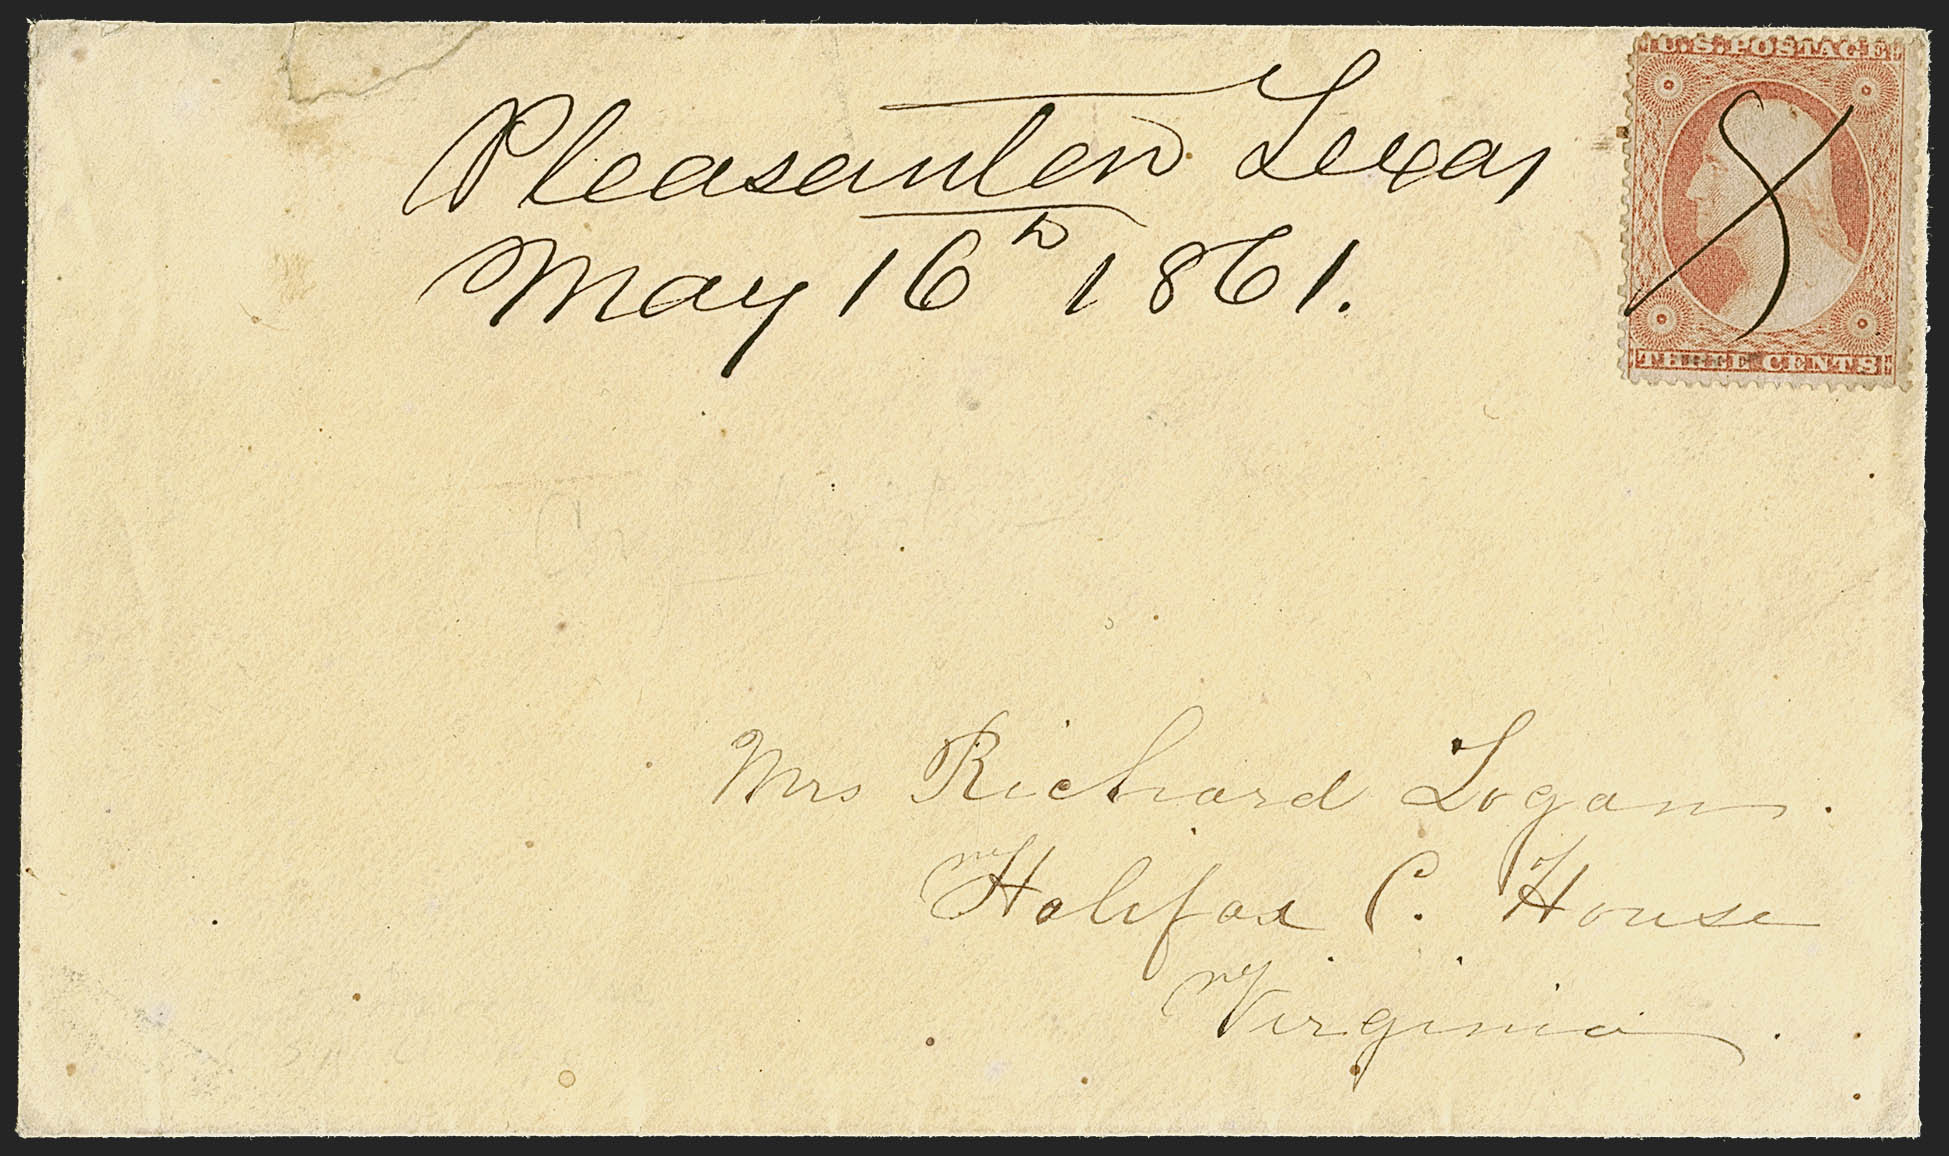 U.S. POSTAGE
Pleasanton Texas
May 16th 1861.
THREE CENTS
Mrs Richard Logan.
Halifax C. House
Virginia.